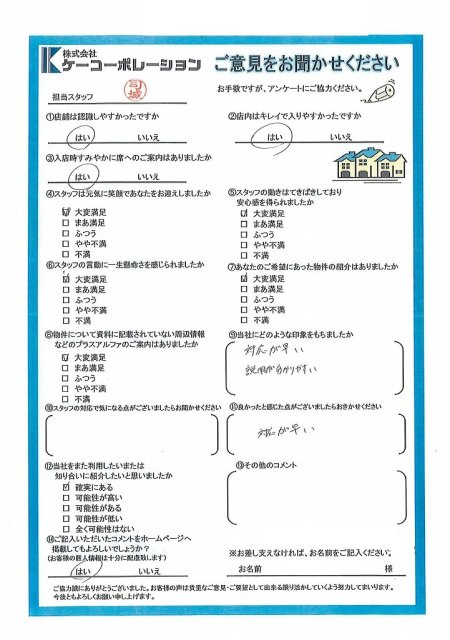 株式会社
ケーコーポレーション
ご意見をお聞かせください
担当スタッフ
お手数ですが、アンケートにご協力ください。
①店舗は認識しやすかったですか
はい いいえ
②店内はキレイで入りやすかったですか
はい いいえ
③入店時すみやかに席へのご案内はありましたか
はい いいえ
④スタッフは元気に笑顔であなたをお迎えしましたか
大変満足
まあ満足
ふつう
やや不満
不満
⑤スタッフの動きはてきぱきしており
安心感を得られましたか
大変満足
まあ満足
ふつう
やや不満
不満
⑥スタッフの言動に一生懸命さを感じられましたか
大変満足
まあ満足
ふつう
やや不満
不満
⑦あなたのご希望にあった物件の紹介はありましたか
大変満足
まあ満足
ふつう
やや不満
不満
⑧物件について資料に記載されていない周辺情報
などのプラスアルファのご案内はありましたか
大変満足
まあ満足
ふつう
やや不満
不満
⑨当社にどのような印象をもちましたか
対応が早い
説明が分かりやすい
⑩スタッフの対応で気になる点がございましたらお聞かせください
⑪良かったと感じた点がございましたらおきかせください
対応が早い
⑫当社をまた利用したいまたは
知り合いに紹介したいと思いましたか
確実にある
可能性が高い
可能性がある
可能性が低い
全く可能性はない
⑬その他のコメント
⑭ご記入いただいたコメントをホームページへ
掲載してもよろしいでしょうか？
（お客様の個人情報は十分に配慮致します）
はい いいえ
※お差し支えなければ、お名前をご記入ください。
お名前 様
ご協力誠にありがとうございました。お客様の声は貴重なご意見・ご要望として出来る限り活かしていくよう努力してまいります。
今後ともよろしくお願い申し上げます。